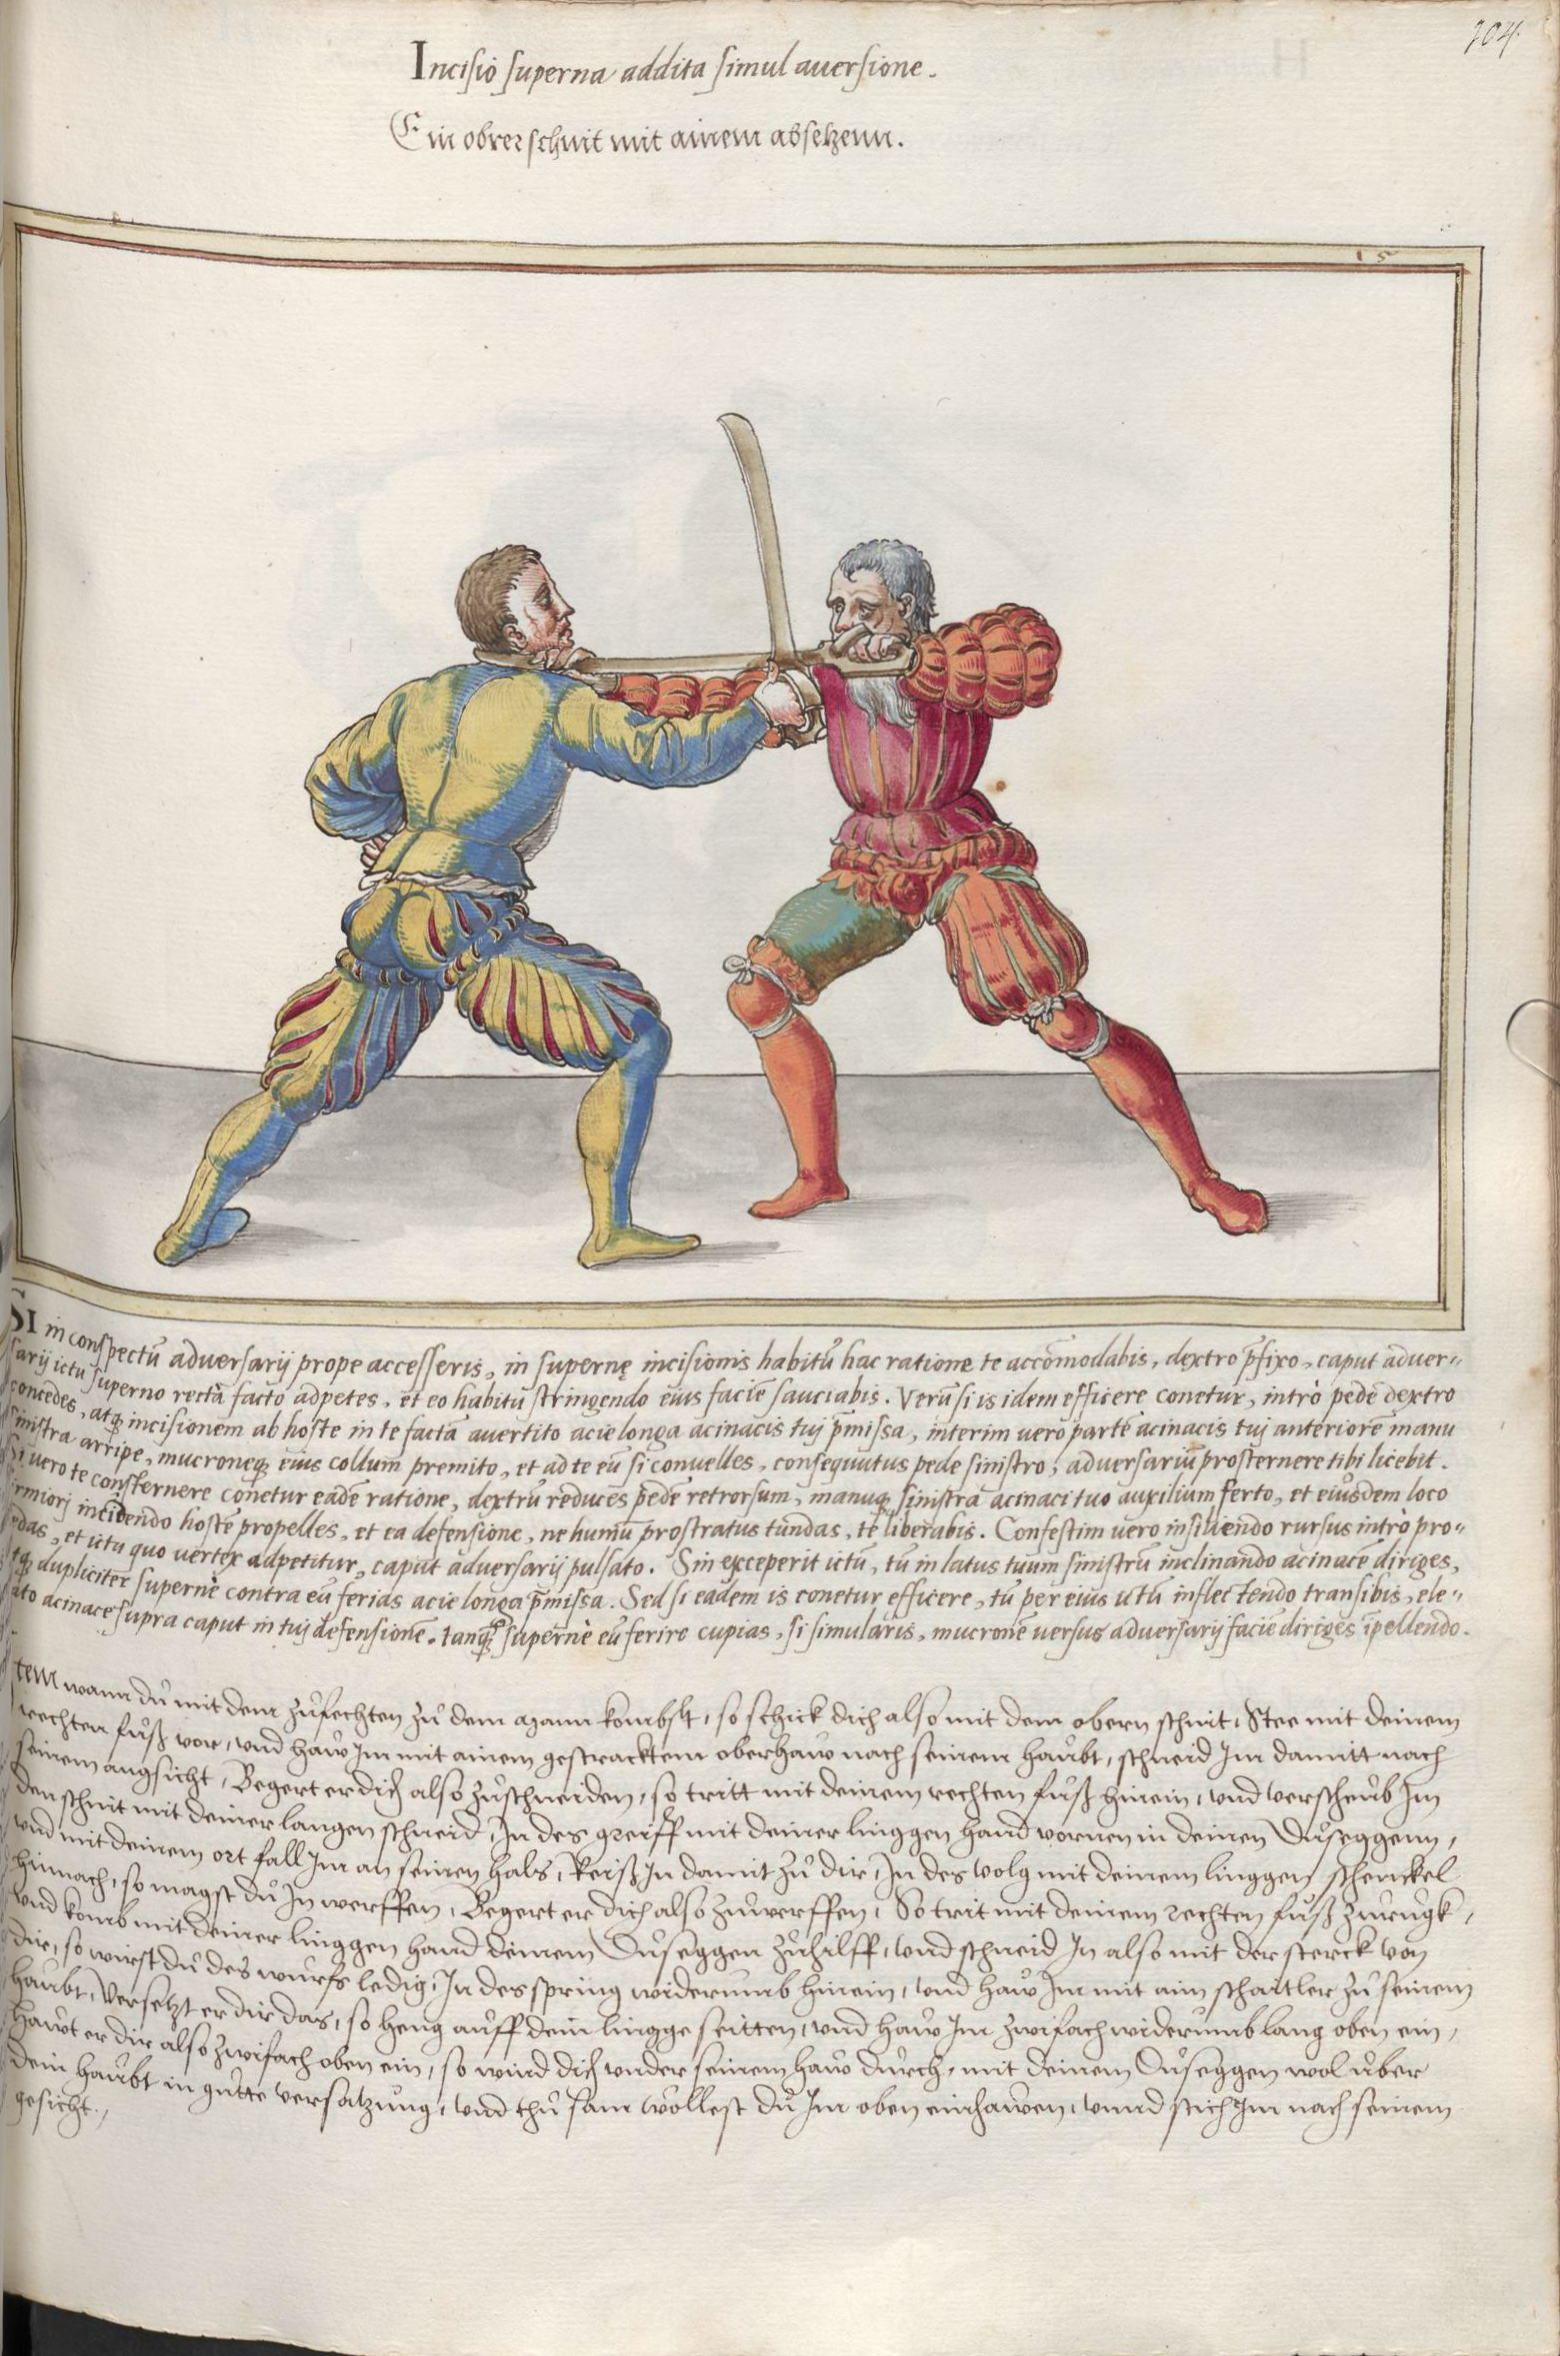 204.
Incisio superna addita simul auersione.
Ein obrer schnit mit ainem absetzenn.
15
SI in conspectū aduersarij prope accesseris, in supernę incisionis habitū hac ratione te accōmodabis, dextro p̄fixo, caput aduer=
sarij ictu superno rectà facto adpetes, et eo habitu stringendo eius faciē sauciabis. Verū si is idem efficere conetur, intrò pedē dextro
concedes, atq̨ incisionem ab hoste in te factā auertito acie longa acinacis tui p̄missa, interim uero partē acinacis tuj anteriorē manu
sinistra arripe, mucroneq̨ eius collum premito, et ad te eū si conuelles, consequutus pede sinistro, aduersariū prosternere tibi licebit.
Si uero te consternere conetur eadē ratione, dextrū reduces pedē retrorsum, manuq̨ sinistra acinaci tuo auxilium ferto, et eiusdem loco
firmiorj incidendo hostē propelles, et ea defensione, ne humū prostratus tundas, te liberabis. Confestim uero insiliendo rursus intrò pro=
edas, et ictu quo uertex adpetitur, caput aduersarij pulsato. Sin exceperit ictū, tū in latus tuum sinistrū inclinando acinacē diriges,
tq̨ dupliciter supernè contra eū ferias acie longa p̄missa. Sed si eadem is conetur efficere, tū per eius ictū inflectendo transibis, ele=
ato acinace supra caput in tuj defensionē, tanq̨ supernè eū ferire cupias, si simularis, mucronē uersus aduersarij faciē diriges īpellendo.
tem wann du mit dem zufechten zu dem mann kombst, so schick dich also mit dem obern schnit, Stee mit deinem
rechten fuß vor, vnd haw Im mit ainem gestracktem oberhaw nach seinem haubt, schneid Im damitt nach
seinem angsicht, Begert er dich also zuschneiden, so tritt mit deinem rechten fuß hinein, vnd verscheub Im
den schnit mit deiner langen schneid, In des greiff mit deiner linggen hand vornen in deinen Duseggenn,
vnd mit deinem ort fall Im an seinen hals, Reiß In damit zu dir, In des volg mit deinem linggen schenckel
hinnach, so magst du In werffen, Begert er dich also zuwerffen, So trit mit deinem rechten fuß zurugk,
vnd komb mit deiner linggen hand deinem Duseggen zuhilff, vnd schneid In also mit der sterck von
dir, so wirst du des wurfs ledig, In des spring widerumb hinein, vnd haw Im mit ain schaitler zu seinem
haubt, Versetzt er dir das, so heng auff dein lingge seitten, vnd haw Im zwifach widerumb lang oben ein,
hawt er dir also zwifach oben ein, so wind dich vnder seinem haw durch, mit deinem Duseggen wol uber
dein haubt in gutte versatzung, vnd thu sam wöllest du Im oben einhawen, vnnd stich Im nach seinem
gesicht.